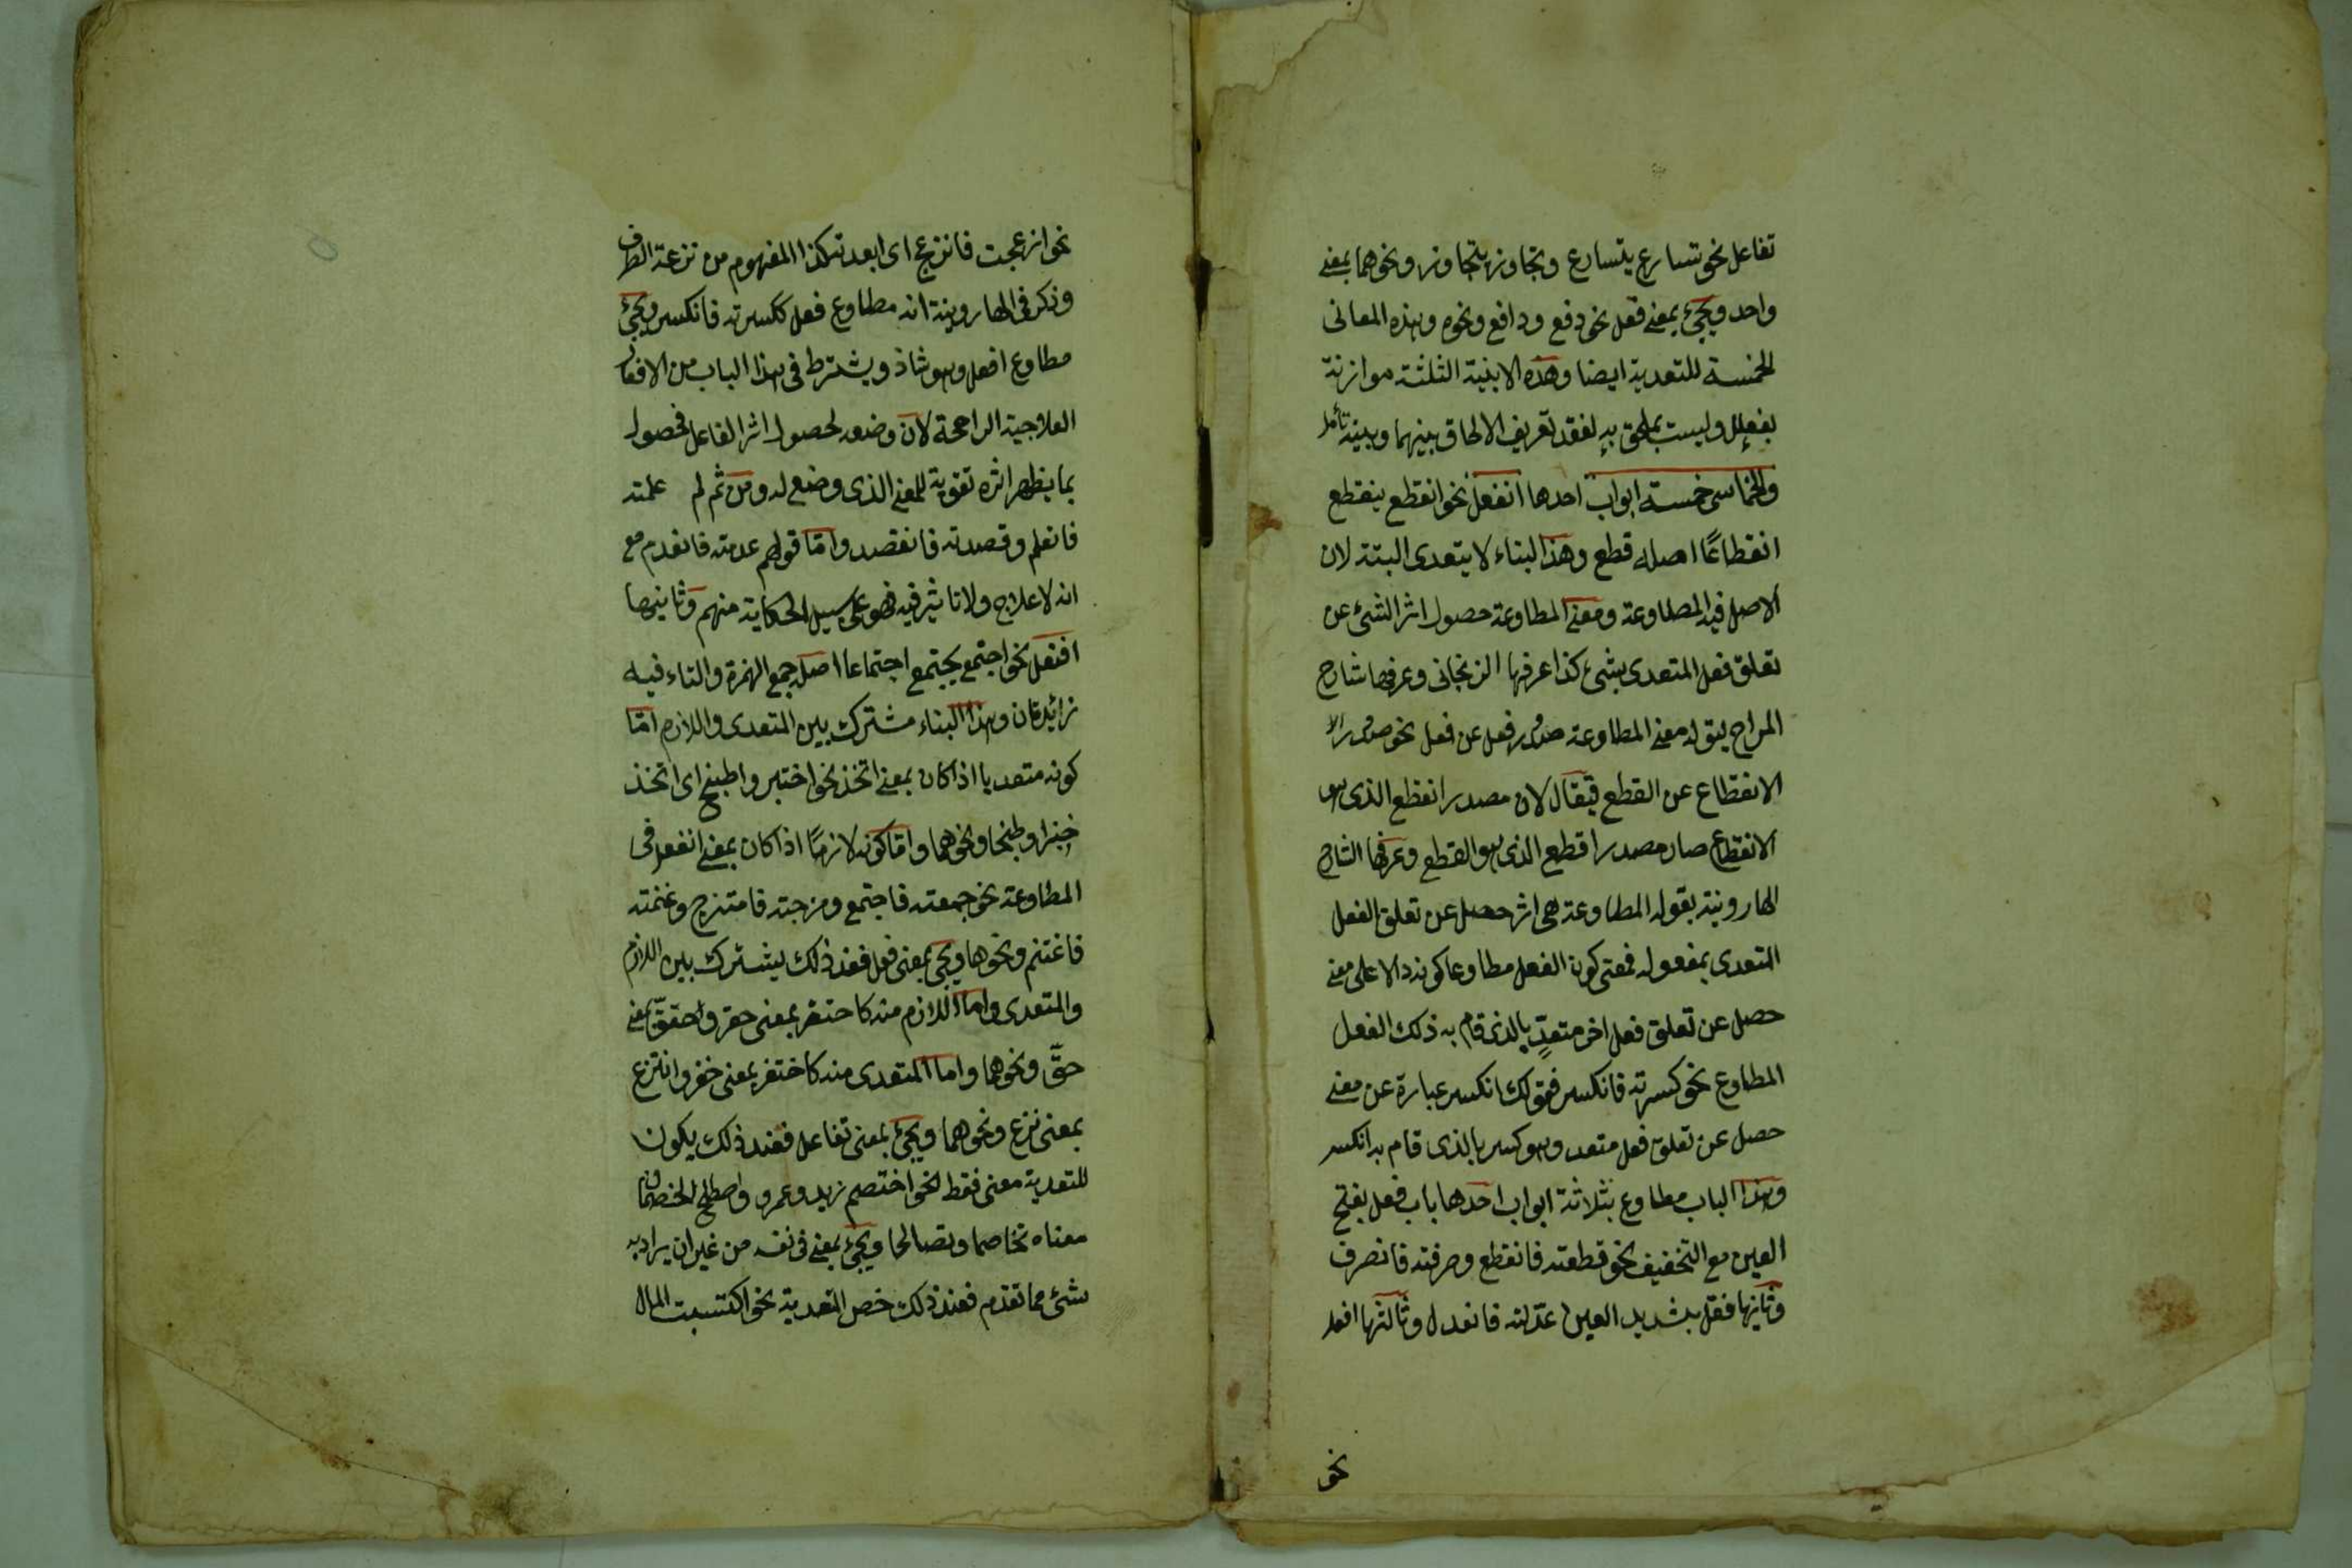 تفاعل نحو تسارع يتسارع وتجاوز يتجاوز ونحوهما بمعنى
واحد ويجئ بمعنى فعل نحو دفع ودافع ونحوه وهذه المعانى
الخمسة للتعدية ايضا وهذه الابنية الثلثة موازنة
بفعلل وليست بملحق به لفقد تعريف الالحاق بينهما وبينه تأمل
والخماسى خمسة ابواب احدها انفعل نحو انقطع ينقطع
انقطاعًا اصله قطع وهذا البناء لا يتعدى البتة لان
الاصل فيه المطاوعة ومعنى المطاوعة حصول اثر الشئ عن
تعلق فعل المتعدى بشئ كذا عرفها الزنجانى وعرفها شارح
المراح بقوله معنى المطاوعة صدور فعل عن فعل نحو صدور
الانقطاع عن القطع فيقال لان مصدر انقطع الذى هو
الانقطاع صار مصدرا قطع الذى هو القطع وعرفها الشارح
الهارونية بقوله المطاوعة هى اثر حصل عن تعلق الفعل
المتعدى بمفعوله فمعنى كون الفعل مطاوعا كونه دالا على معنى
حصل عن تعلق فعل اخر متعدٍ بالذى قام به ذلك الفعل
المطاوع نحو كسرته فانكسر فقولك انكسر عبارة عن معنى
حصل عن تعلق فعل متعد وهو كسر بالذى قام به انكسر
وهذا الباب مطاوع بثلاثة ابواب احدها باب فعل بفتح
العين مع التخفيف نحو قطعته فانقطع وصرفته فانصرف
وثانيها فعّل بشديد العين عدّلته فانعدل وثالثها افعل
نحو
نحو ازعجت فانزعج اى ابعدته كذا المفهوم من نزعة الطرف
وذكر فى الهارونية انه مطاوع فعل ككسرته فانكسر ويجئ
مطاوع افعل وهو شاذ ويشترط فى هذا الباب من الافعال
العلاجية الراجحة لان وضعه لحصول اثر الفاعل فحصول
بما يظهر اثره تقوية للمعنى الذى وضع له ومن ثم لم علمته
فانعلم وقصدته فانقصد وامّا قولهم عدمته فانعدم مع
انه لا علاج ولا تاثير فيه فهو على سبيل الحكاية منهم وثانيها
افتعل نحو اجتمع يجتمع اجتماعا اصله جمع الهمزة والتاء فيه
زائدتان وهذا البناء مشترك بين المتعدى واللازم امّا
كونه متعديا اذا كان بمعنى اتخذ نحو اختبز واطبخ اى اتخذ
خبزا وطبخا ونحوهما وامّا كونه لازمًا اذا كان بمعنى انفعل فى
المطاوعة نحو جمعته فاجتمع ومزجته فامتزج وغنمته
فاغتنم ونحوها ويجئ بمعنى فعل فعند ذلك يشترك بين اللازم
والمتعدى واما اللازم منه كاحتقر بمعنى حقر واحقق بمعنى
حقّ ونحوهما واما المتعدى منه كاختفر بمعنى خفر وانتزع
بمعنى نزع ونحوهما ويجئ بمعنى تفاعل فعند ذلك يكون
للتعدية معنى فقط نحو اختصم زيد وعمرو واصطلح الخصمان
معناه تخاصما وتصالحا ويجئ بمعنى فى نفسه من غير ان يراد به
شئ مما تقدم فعند ذلك خص التعدية نحو اكتسبت المال